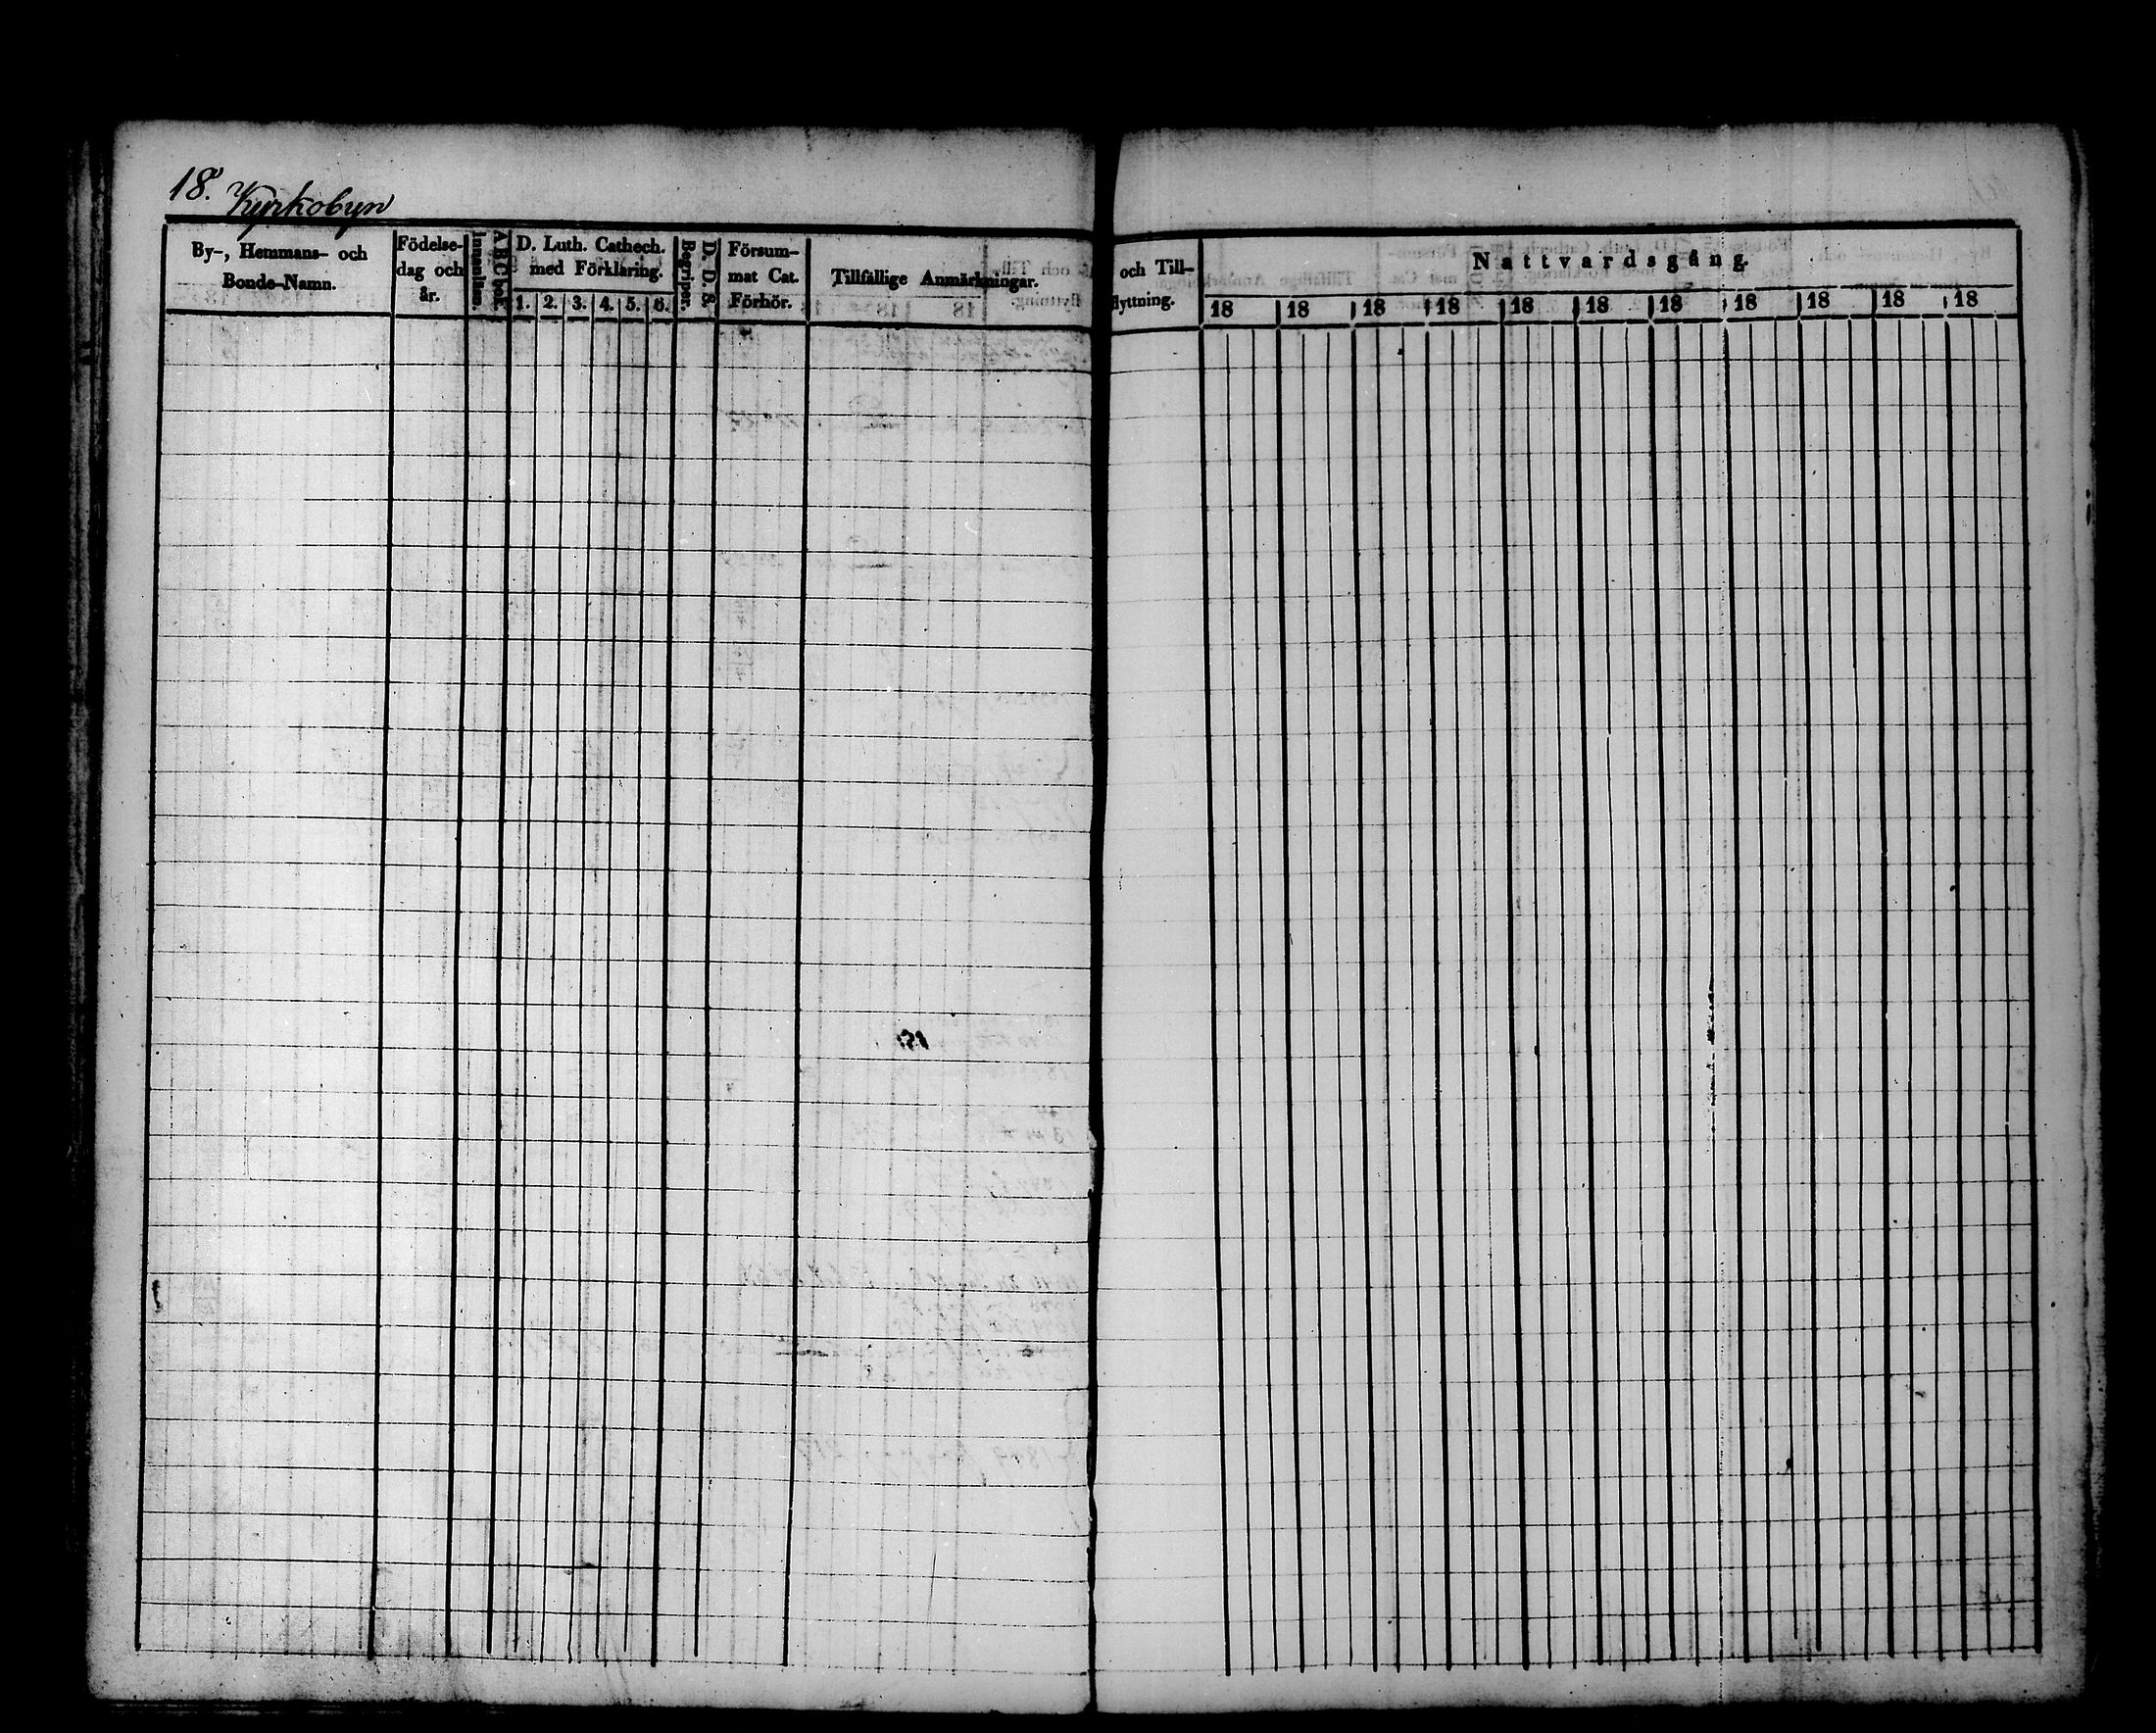 18. Kyrkobyn
By-, Hemmans- och
Bonde-Namn.
Födelse-
dag och
år.
Innanläsn.
ABCbok
D. Luth. Cathech.
med Förklaring.
1. 2. 3. 4. 5. 6.
Begriper.
D. D. S.
Försum-
mat Cat.
Förhör.
Tillfällige Anmärkningar.
och Till-
flyttning.
Nattvardsgång.
18 18 18 18 18 18 18 18 18 18 18